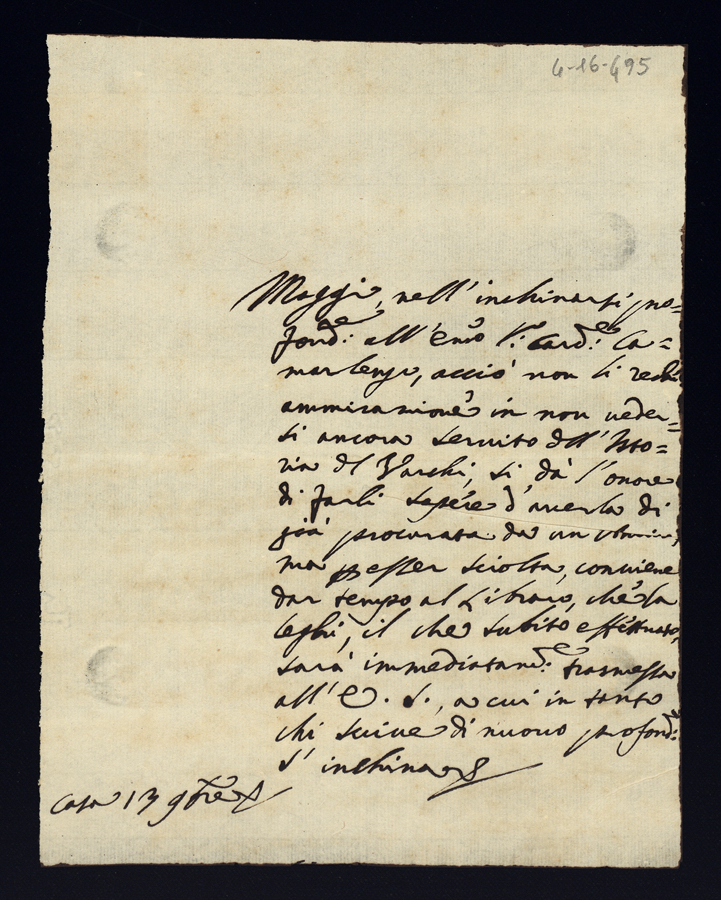 4-16-495
Maggi, nell'inchinarsi pro=
fond.e: all'Emo Sr: Card.e: Ca=
marlengo, acciò non li rechi
ammirazione in non veder=
si ancora servito dell'Isto=
ria del Varchi, si dà l'onore
di farli sapere d'averla di
già procurata da un
ma p esser sciolta, conviene
dar tempo al Libraro, che la
leghi, il che subito effettuato,
sarà immediatam.e: trasmessa
all'E. S., a cui in tanto
chi scrive di nuovo profond.e:
s'inchina
Casa 13 9bre